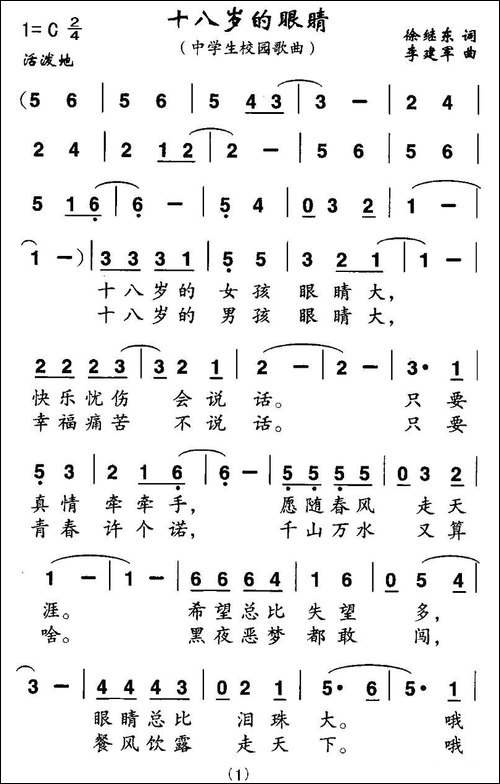 十八岁的眼睛
1=C 2/4 （中学生校园歌曲） 徐继东 词
活泼地 李建军 曲
(5 6 | 5 6 | 5 43 | 3 - | 2 4 |
2 4 | 2 12 | 2 - | 5 6 | 5 6 |
5 16 | 6 - | 5 4 | 03 2 | 1 - |
1 -) | 33 31 | 5 5 | 3 21 | 1 - |
十八岁的 女孩 眼睛大，
十八岁的 男孩 眼睛大，
22 23 | 3 2 1 | 2 - | 2 - | 3· 1 |
快乐忧伤 会说话。 只要
幸福痛苦 不说话。 只要
5 3 | 2 16 | 6 - | 55 55 | 03 2 |
真情 牵牵手， 愿随春风 走天
青春 许个诺， 千山万水 又算
1 - | 1 - | 66 64 | 1 16 | 05 4 |
涯。 希望总比 失望 多，
啥。 黑夜恶梦 都敢 闯，
3 - | 44 43 | 02 1 | 5· 6 | 5· 1 |
眼睛总比 泪珠大。 哦
餐风饮露 走天下。 哦
(1)